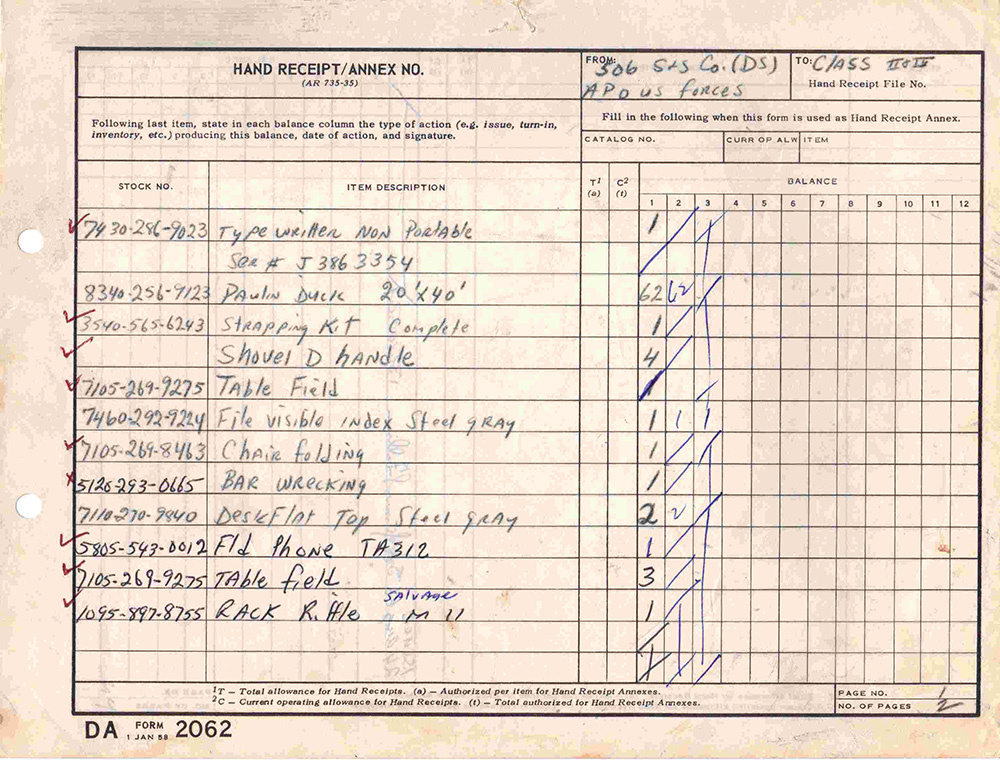 HAND RECEIPT/ANNEX NO.
(AR 735-35)
FROM: 506 S&S Co. (DS)
APO US forces
TO: CLASS II & IV
Hand Receipt File No.
Following last item, state in each balance column the type of action (e.g. issue, turn-in,
inventory, etc.) producing this balance, date of action, and signature.
Fill in the following when this form is used as Hand Receipt Annex.
CATALOG NO. CURR OP ALW ITEM
STOCK NO. ITEM DESCRIPTION T1 (a) C2 (t) BALANCE
1 2 3 4 5 6 7 8 9 10 11 12
7430-286-9023 Type writter NON Portable 1
Ser # J 386 3354
8340-256-9123 PAULIN DUCK 20'X40' 62 62
3540-565-6243 STRAPPING KIT Complete 1
Shovel D handle 4
7105-269-9275 TABLE Field 1
7460-292-9224 File visible index Steel GRAY 1 1 1
7105-269-8463 Chair folding 1
5120-293-0665 BAR WRECKING 1
7110-270-9840 Desk Flat Top Steel GRAY 2 2
5805-543-0012 Fld Phone TA312 1
7105-269-9275 TAble field 3
SALVAGE
1095-897-8755 RACK Rifle M 11 1
1T — Total allowance for Hand Receipts. (a) — Authorized per item for Hand Receipt Annexes.
2C — Current operating allowance for Hand Receipts. (t) — Total authorized for Hand Receipt Annexes.
PAGE NO. 1
NO. OF PAGES 2
DA FORM 2062
1 JAN 58